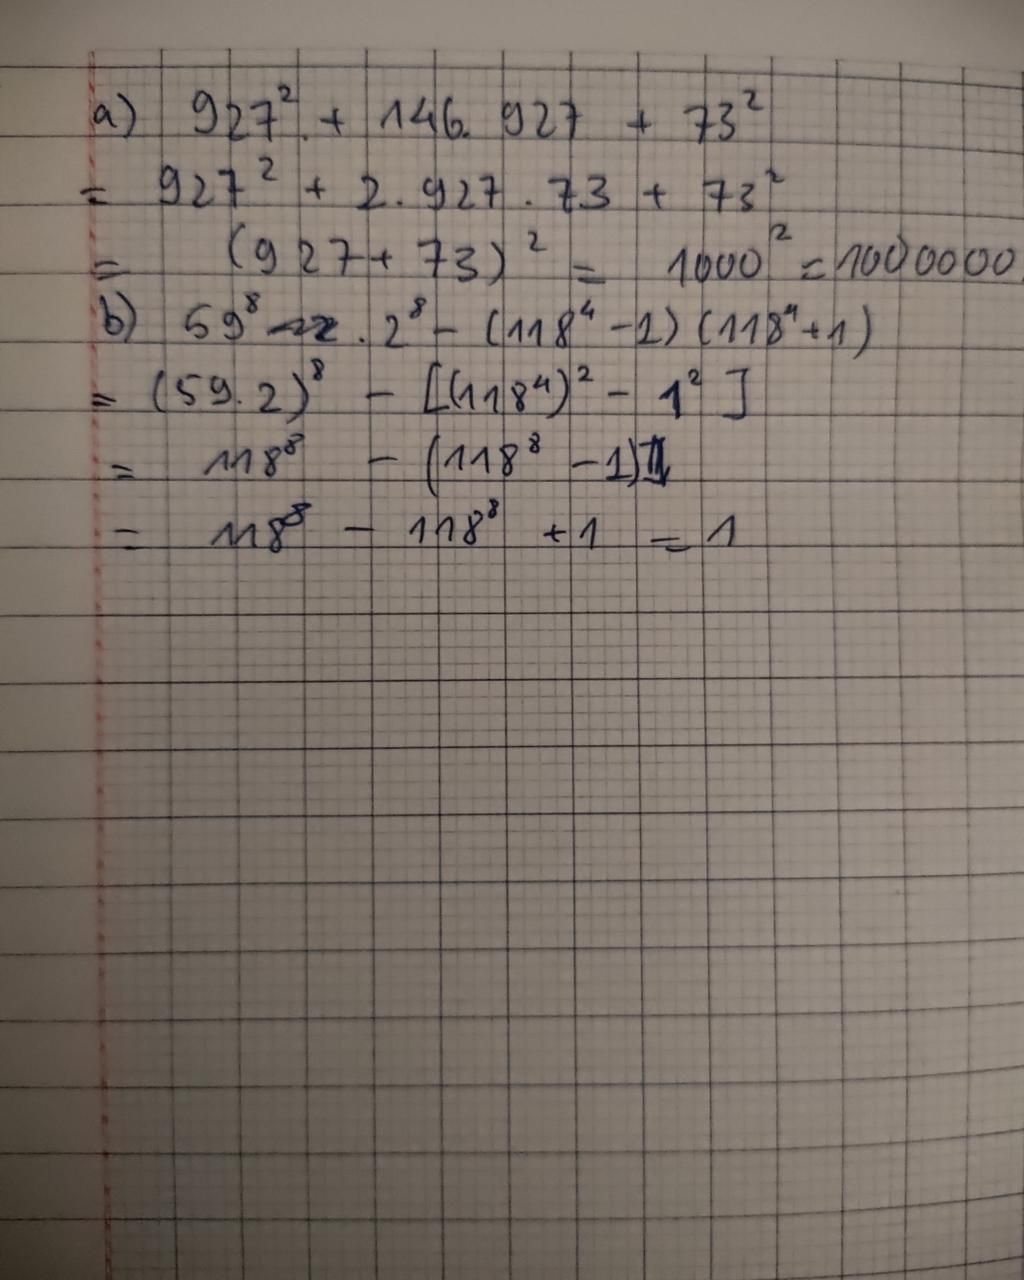 a) 927² + 146. 927 + 73²
= 927² + 2. 927 . 73 + 73²
= (927 + 73)² = 1000² = 1000000
b) 59⁸ . 2⁸ - (118⁴ - 1) (118⁴ + 1)
= (59. 2)⁸ - [(118⁴)² - 1²]
= 118⁸ - (118⁸ - 1)
= 118⁸ - 118⁸ + 1 = 1